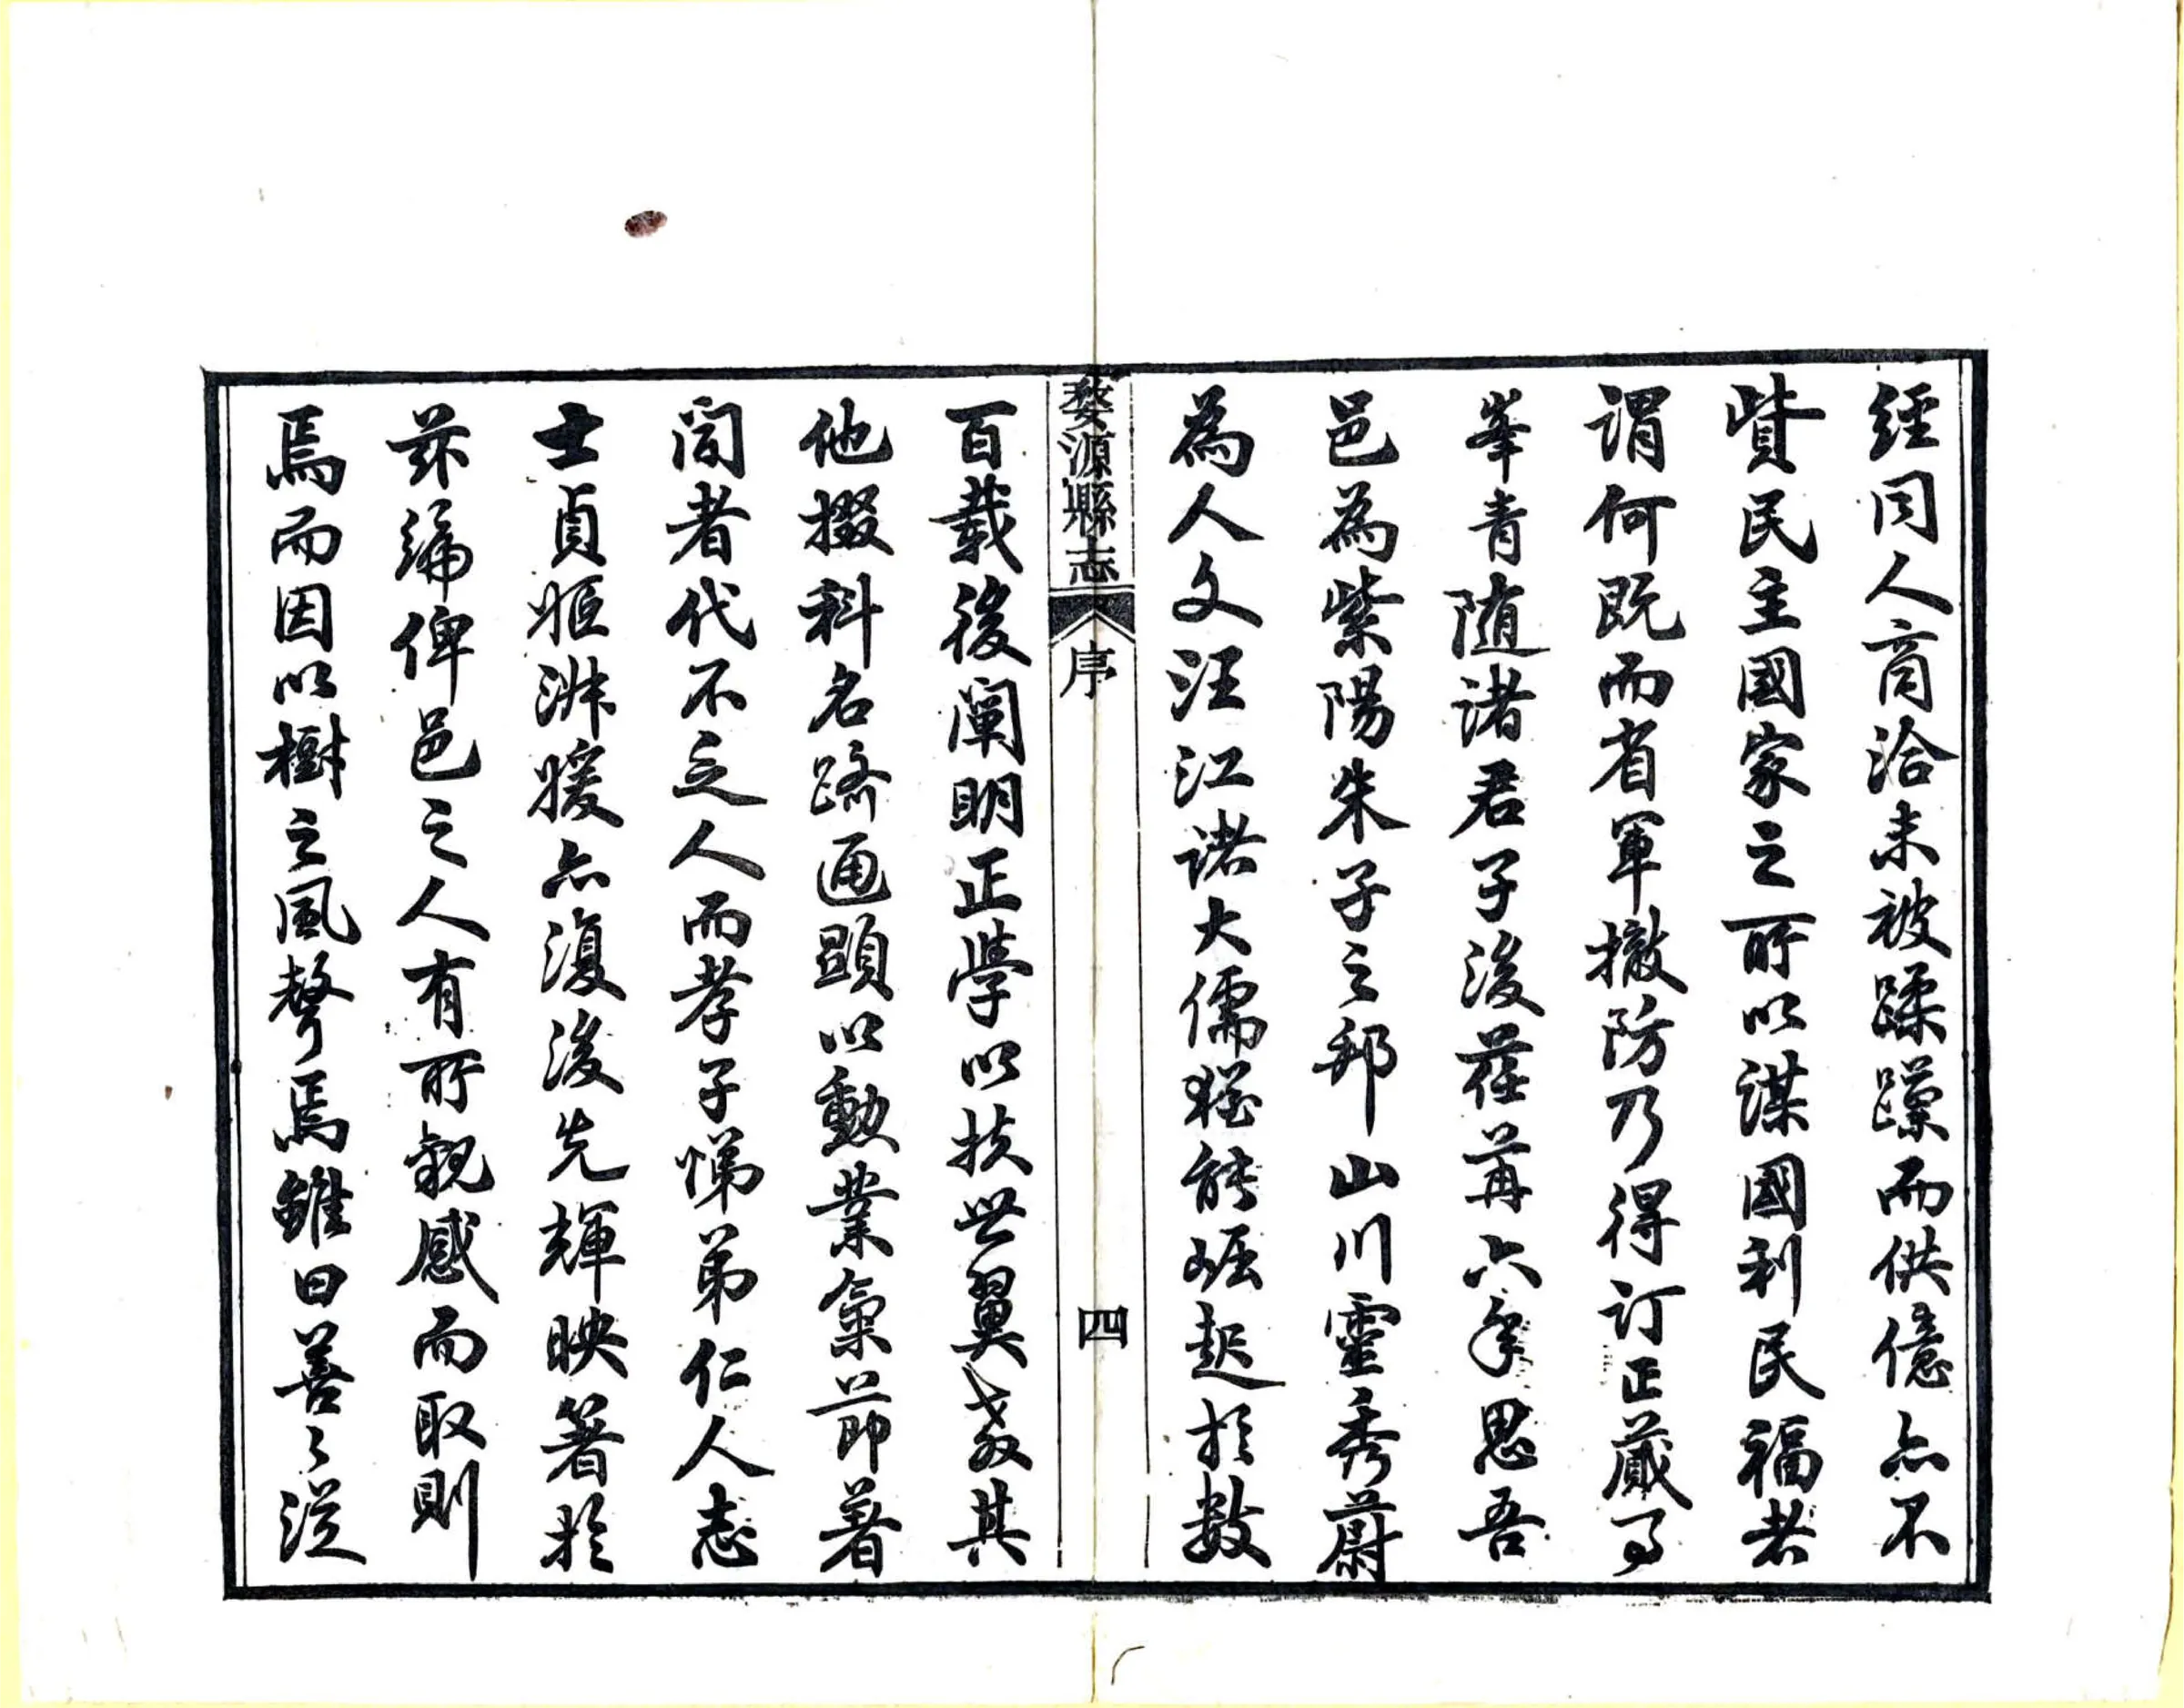 經同人商洽未被蹂躪而供億亦不
貲民主國家之所以謀國利民福者
謂何既而省軍撤防乃得訂正蕆事
峯青隨諸君子後荏苒六年思吾
邑為紫陽朱子之邦山川靈秀蔚
為人文汪江諸大儒猶能崛起於數
婺源縣志 序 四
百載後闡明正學以扶世翼教其
他掇科名躋通顯以勳業氣節著
聞者代不乏人而孝子悌弟仁人志
士貞姬淑媛亦復後先輝映著於
茲編俾邑之人有所觀感而取則
焉而因以樹之風聲焉雖曰善善從